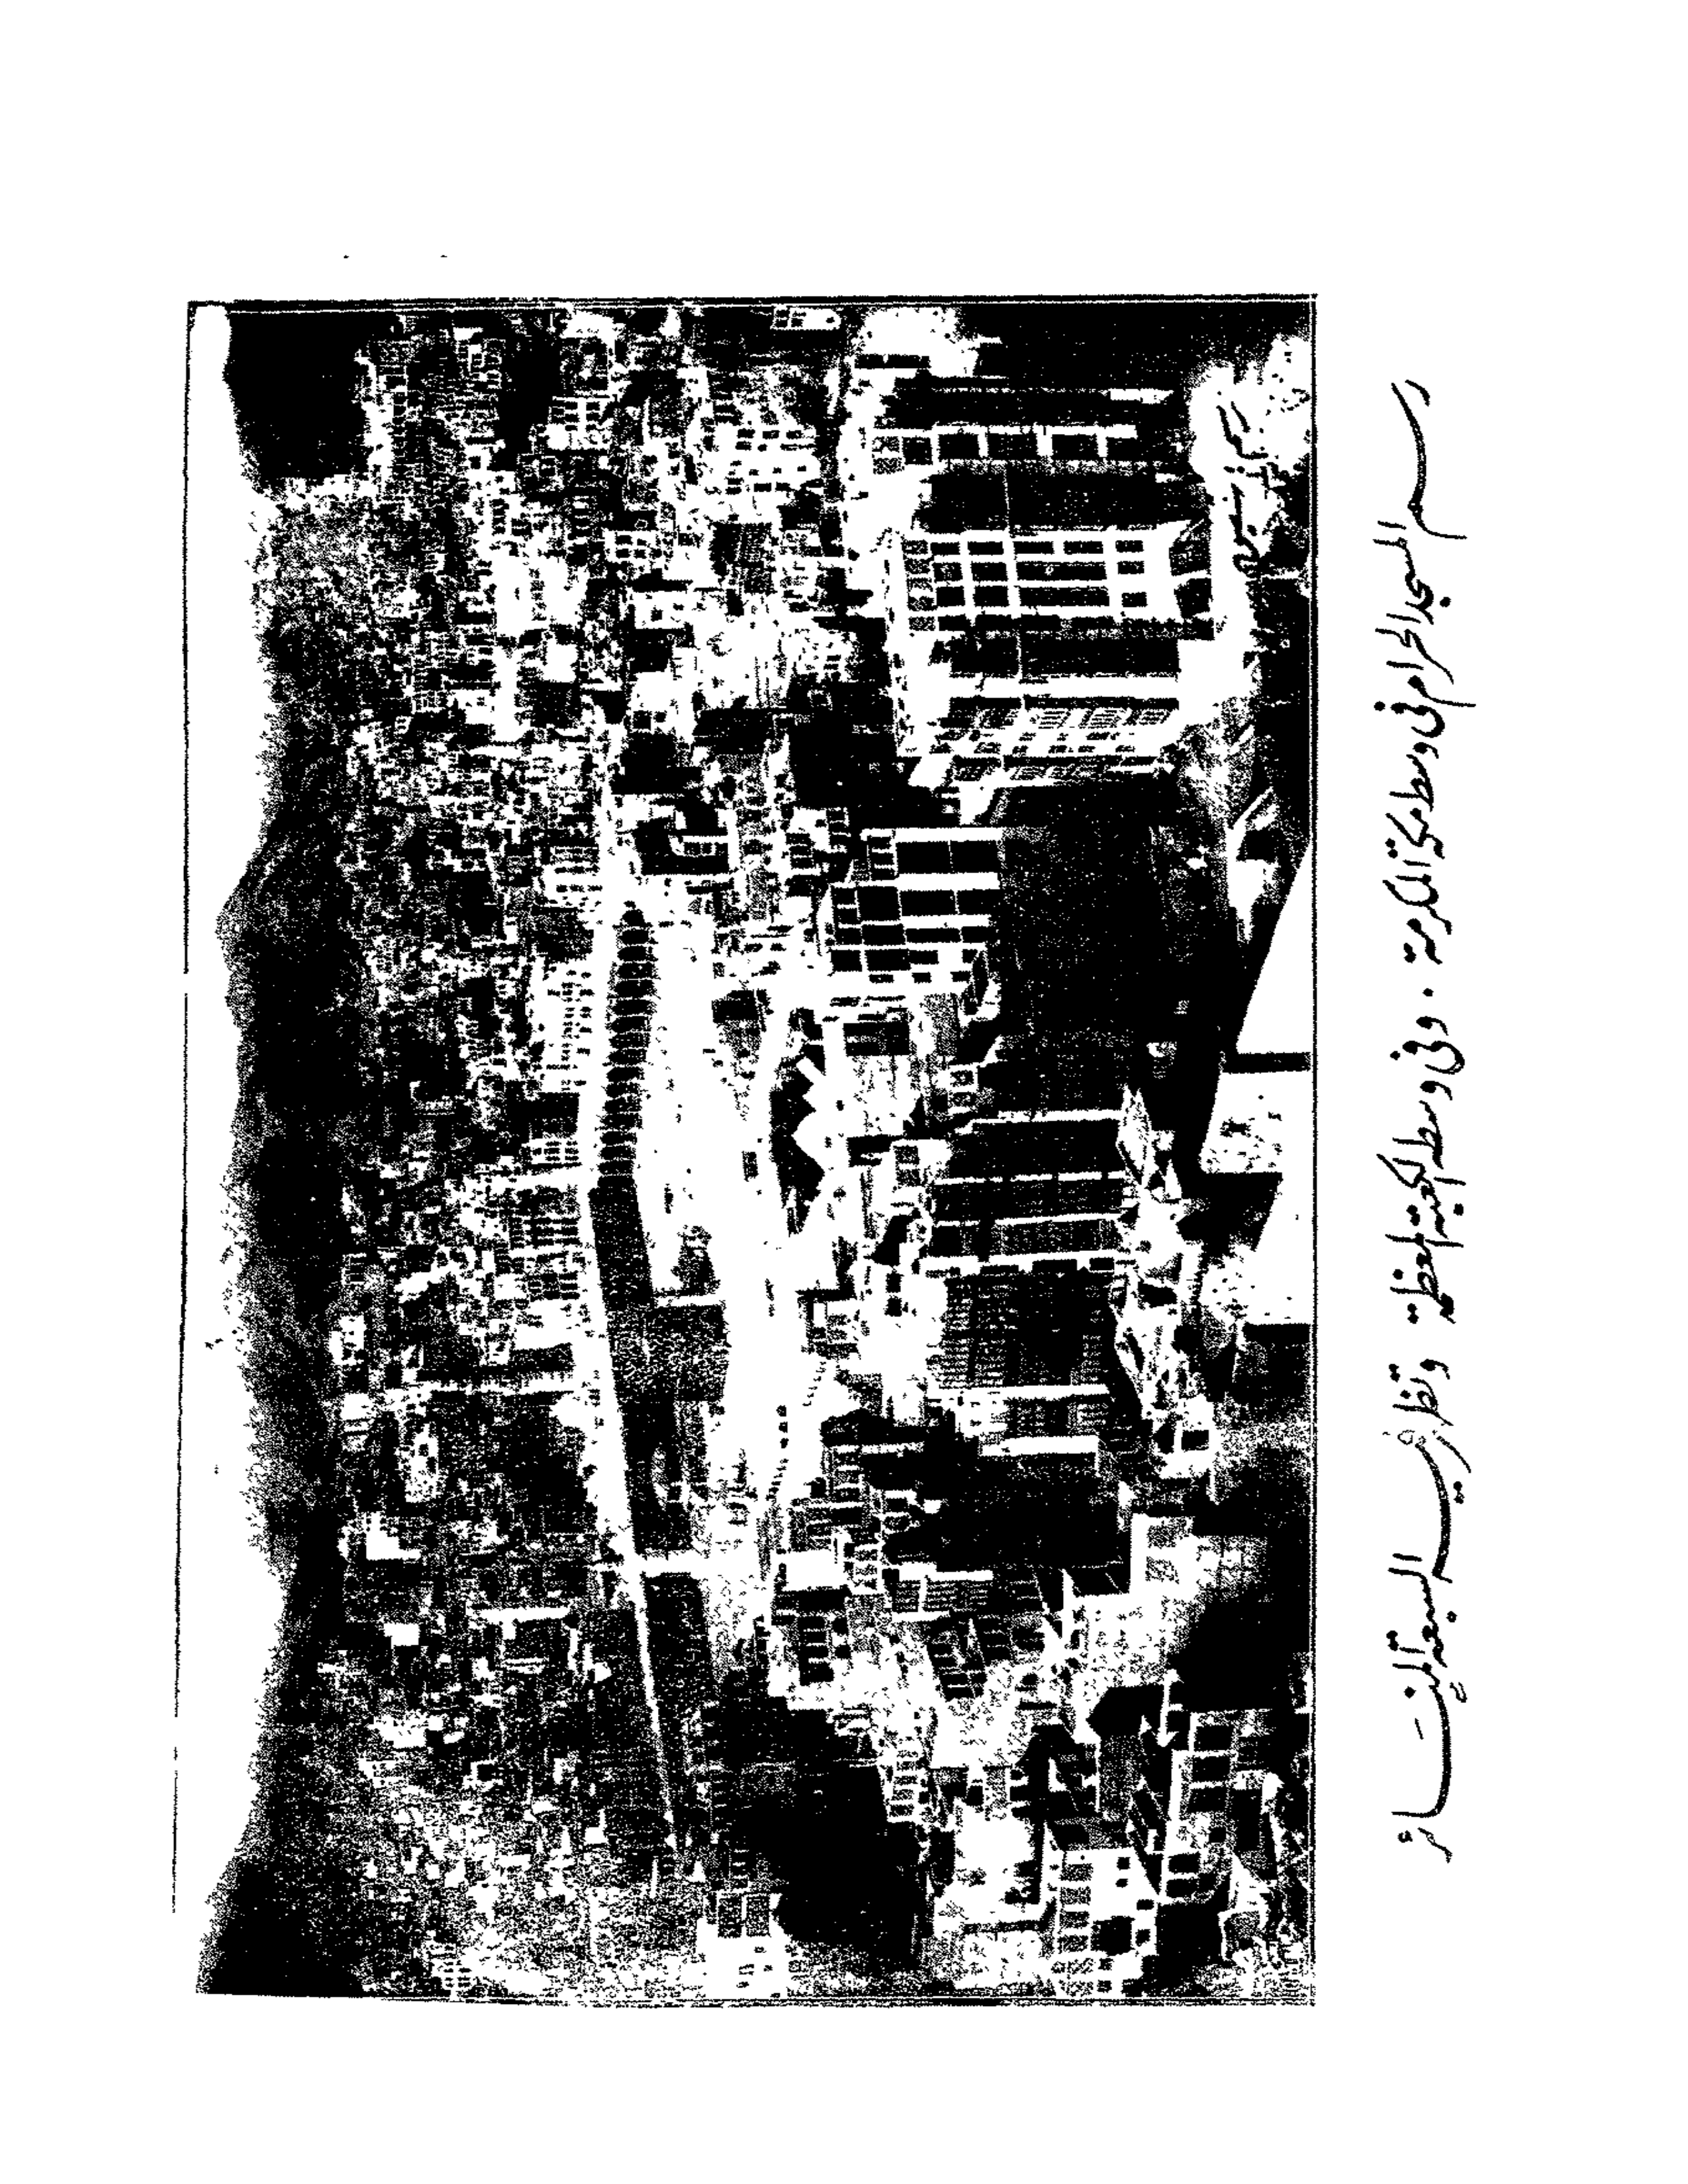 رسم المسجد الحرام في وسط مكة المكرمة . وفي وسطه الكعبة المعظمة وتظهر فيه السبعة المنائر